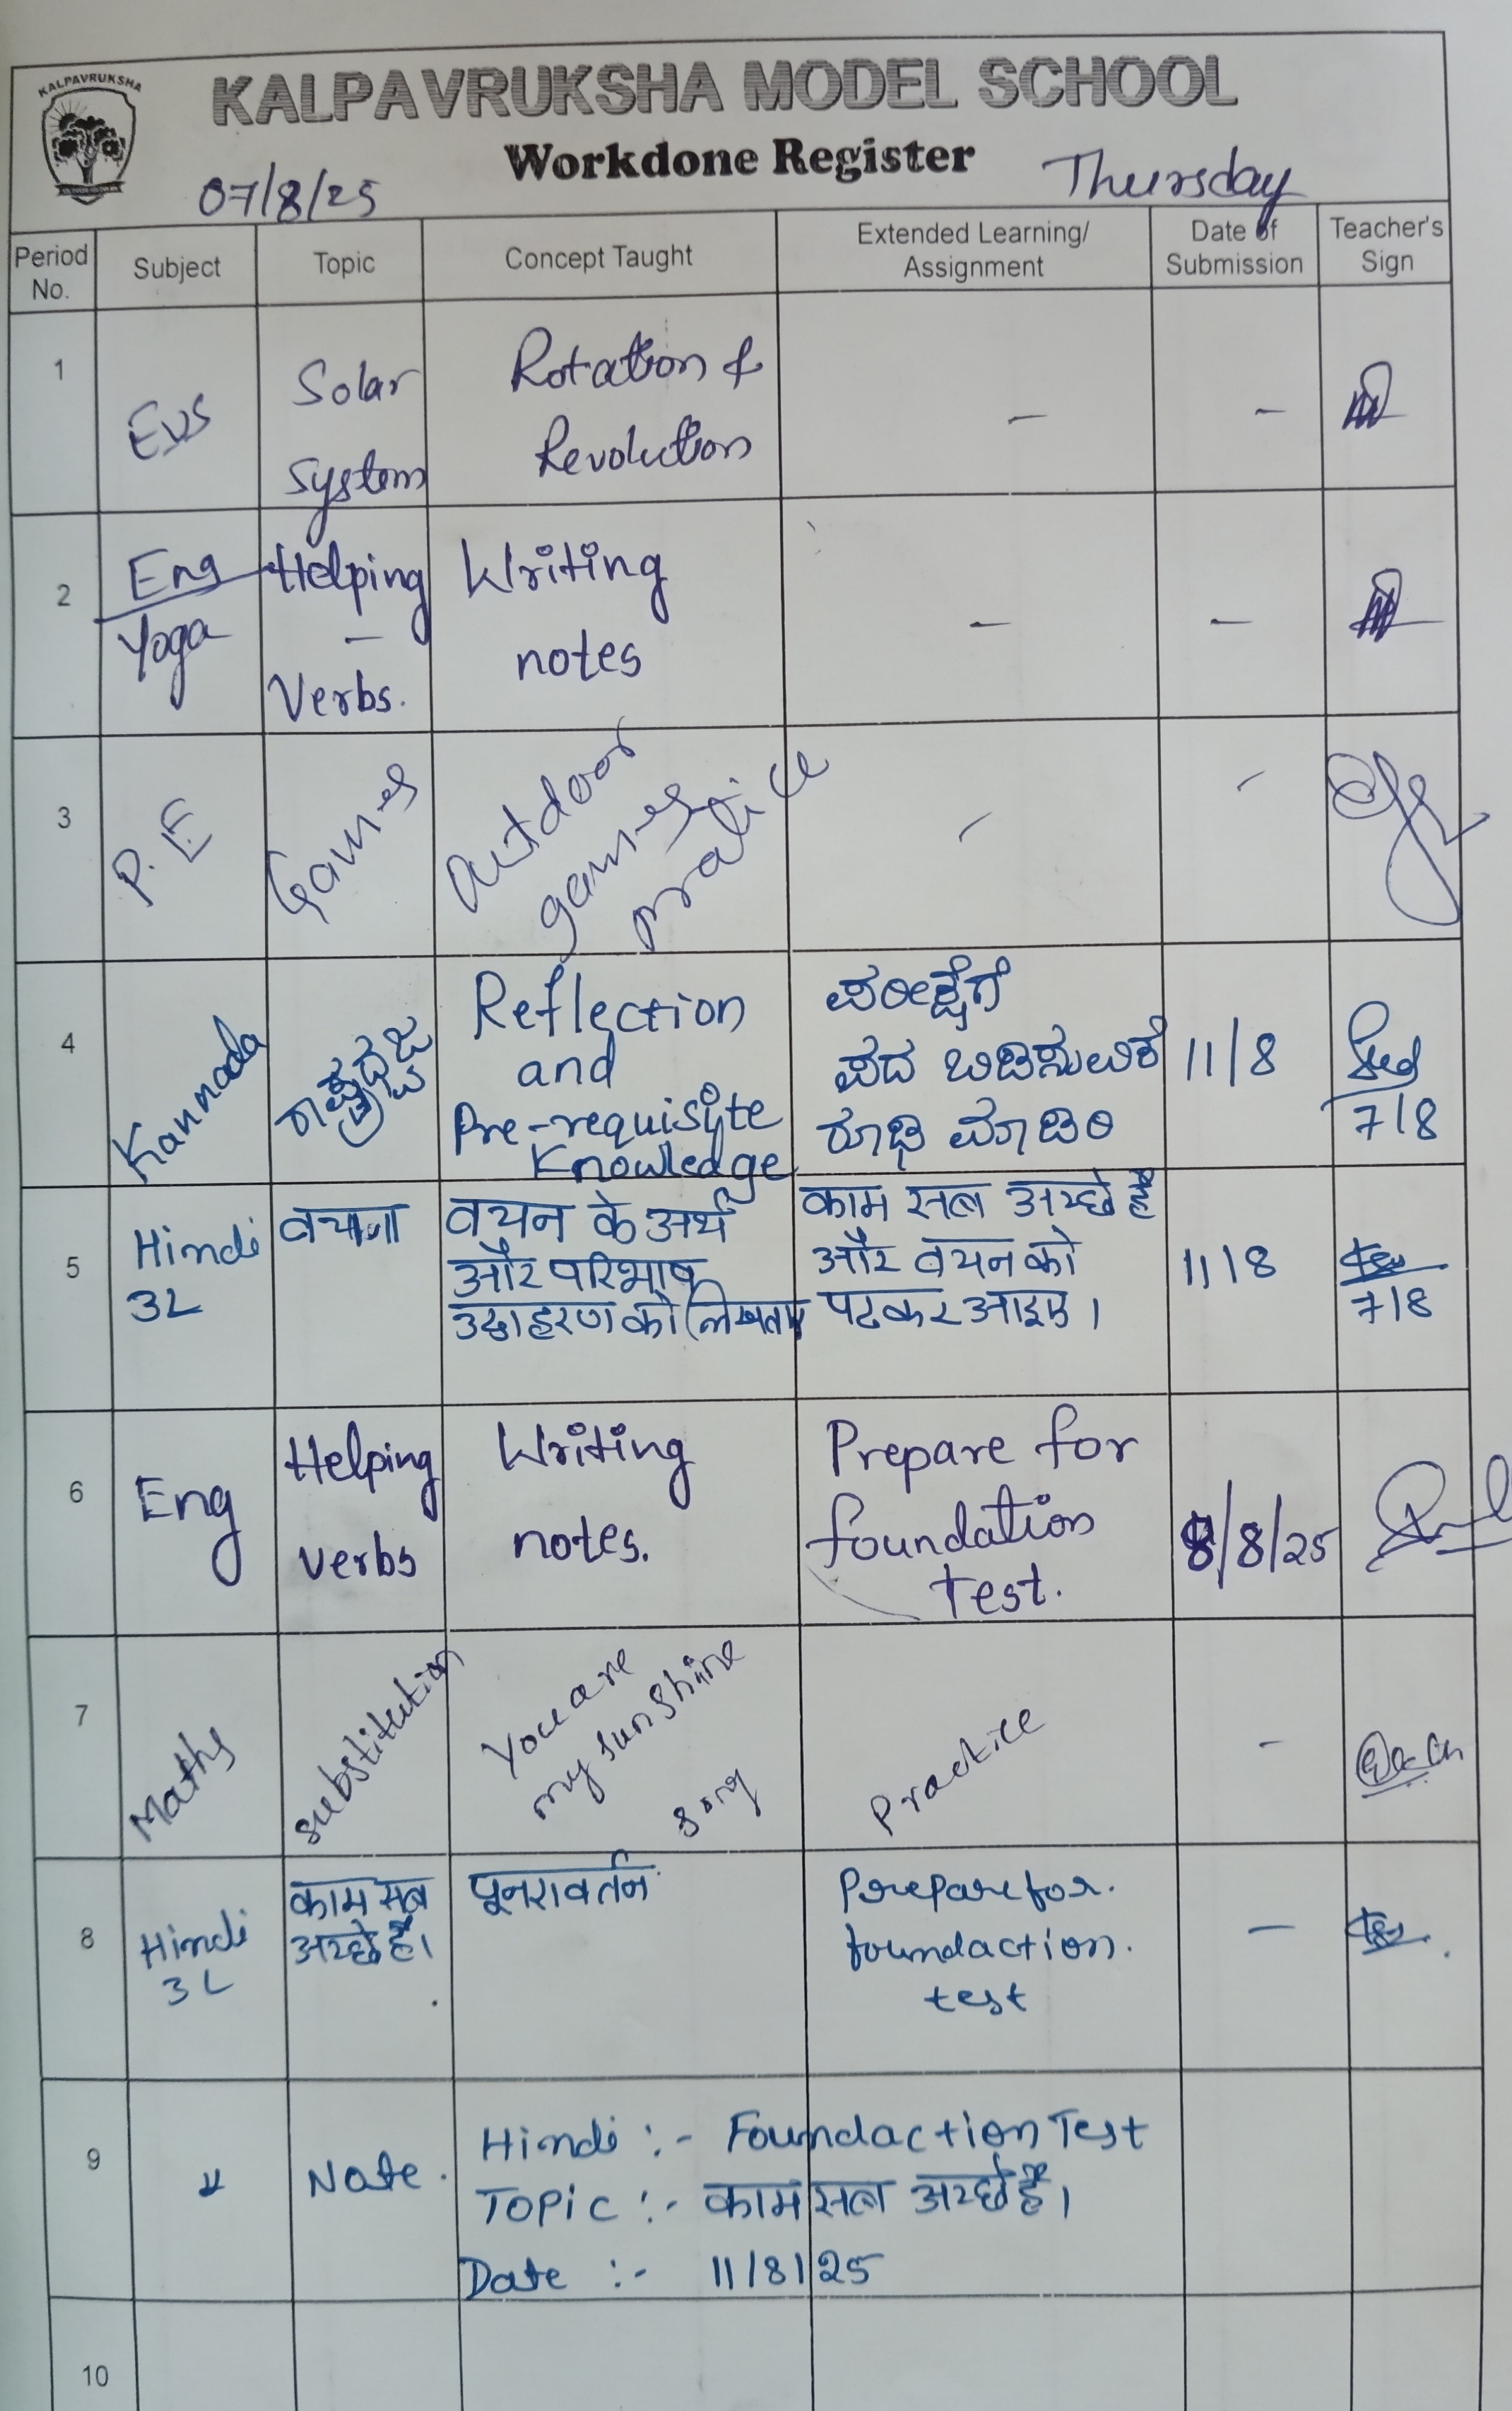 KALPAVRUKSHA
KALPAVRUKSHA MODEL SCHOOL
Workdone Register
07/8/25
Thursday
Period No. Subject Topic Concept Taught Extended Learning/ Assignment Date of Submission Teacher's Sign
1 EVS Solar System Rotation & Revolution - -
2 Eng / Yoga Helping - Verbs. Writing notes - -
3 P.E Games Outdoor games pratice - -
4 Kannada ರಾಷ್ಟ್ರಧ್ವಜ Reflection and Pre-requisite Knowledge ಪರೀಕ್ಷೆಗೆ ಪದ ಬಿಡಿಸುವಿಕೆ ರೂಢಿ ಮಾಡಿರಿ 11/8 7/8
5 Hindi 3L वचन वचन के अर्थ और परिभाषा उदाहरण को लिखना काम सब अच्छे है और वचन को पटकर आइए। 11/8 7/8
6 Eng Helping verbs Writing notes. Prepare for foundation test. 8/8/25
7 Maths substitution You are my sunshine song Practice -
8 Hindi 3L काम सब अच्छे है। पूनरावर्तन Prepare for. foundaction. test -
9 Note. Hindi :- Foundaction Test
Topic :- काम सब अच्छे है।
Date :- 11/8/25
10